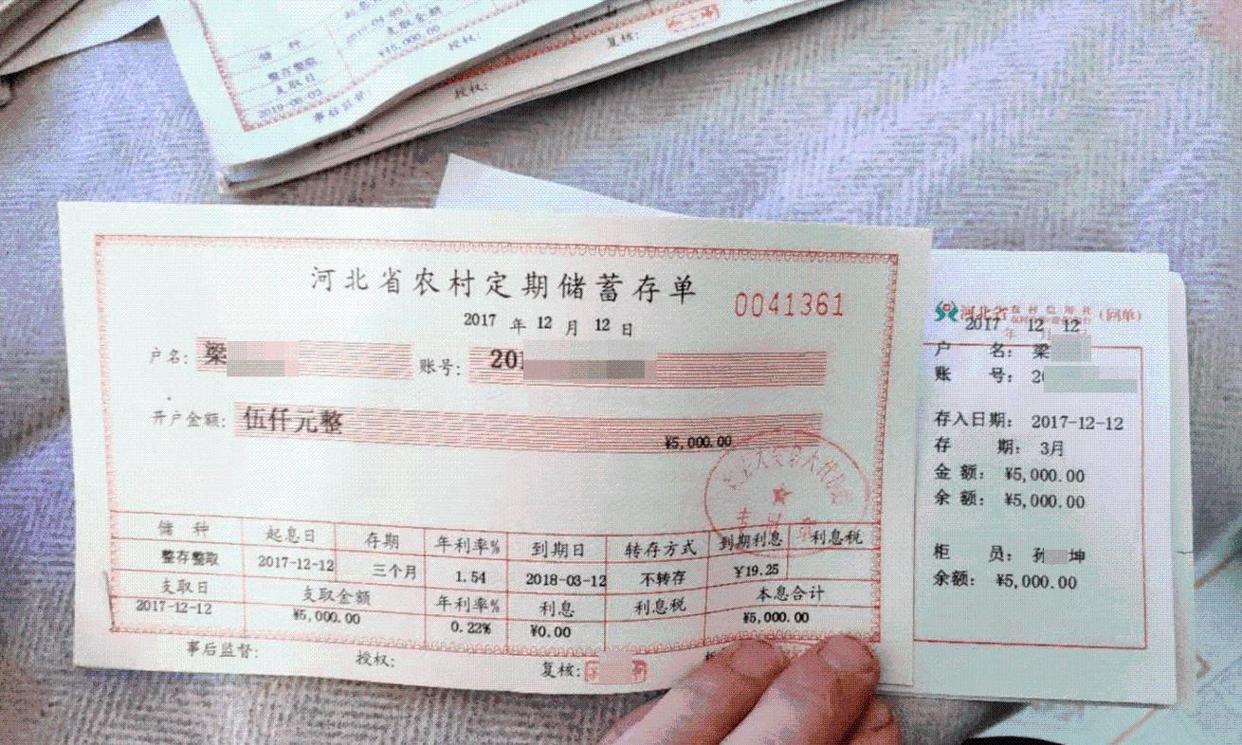 储 种
整存整取
支取日
2019-06-03
事后监督:
¥15,000.00
授权:
复核:
授权:
河北省农村定期储蓄存单
0041361
2017 年 12 月 12 日
户名: 梁
账号: 20
开户金额: 伍仟元整
¥5,000.00
储 种 起息日 存期 年利率% 到期日 转存方式 到期利息 利息税
整存整取 2017-12-12 三个月 1.54 2018-03-12 不转存 ¥19.25
支取日 支取金额 年利率% 利息 利息税 本息合计
2017-12-12 ¥5,000.00 0.22% ¥0.00 ¥5,000.00
事后监督: 授权: 复核:
河北省农村信用社 (回单)
2017 年 12 月 12
户 名: 梁
账 号: 2
存入日期: 2017-12-12
存 期: 3月
金 额: ¥5,000.00
余 额: ¥5,000.00
柜 员: 孙 坤
余额: ¥5,000.00